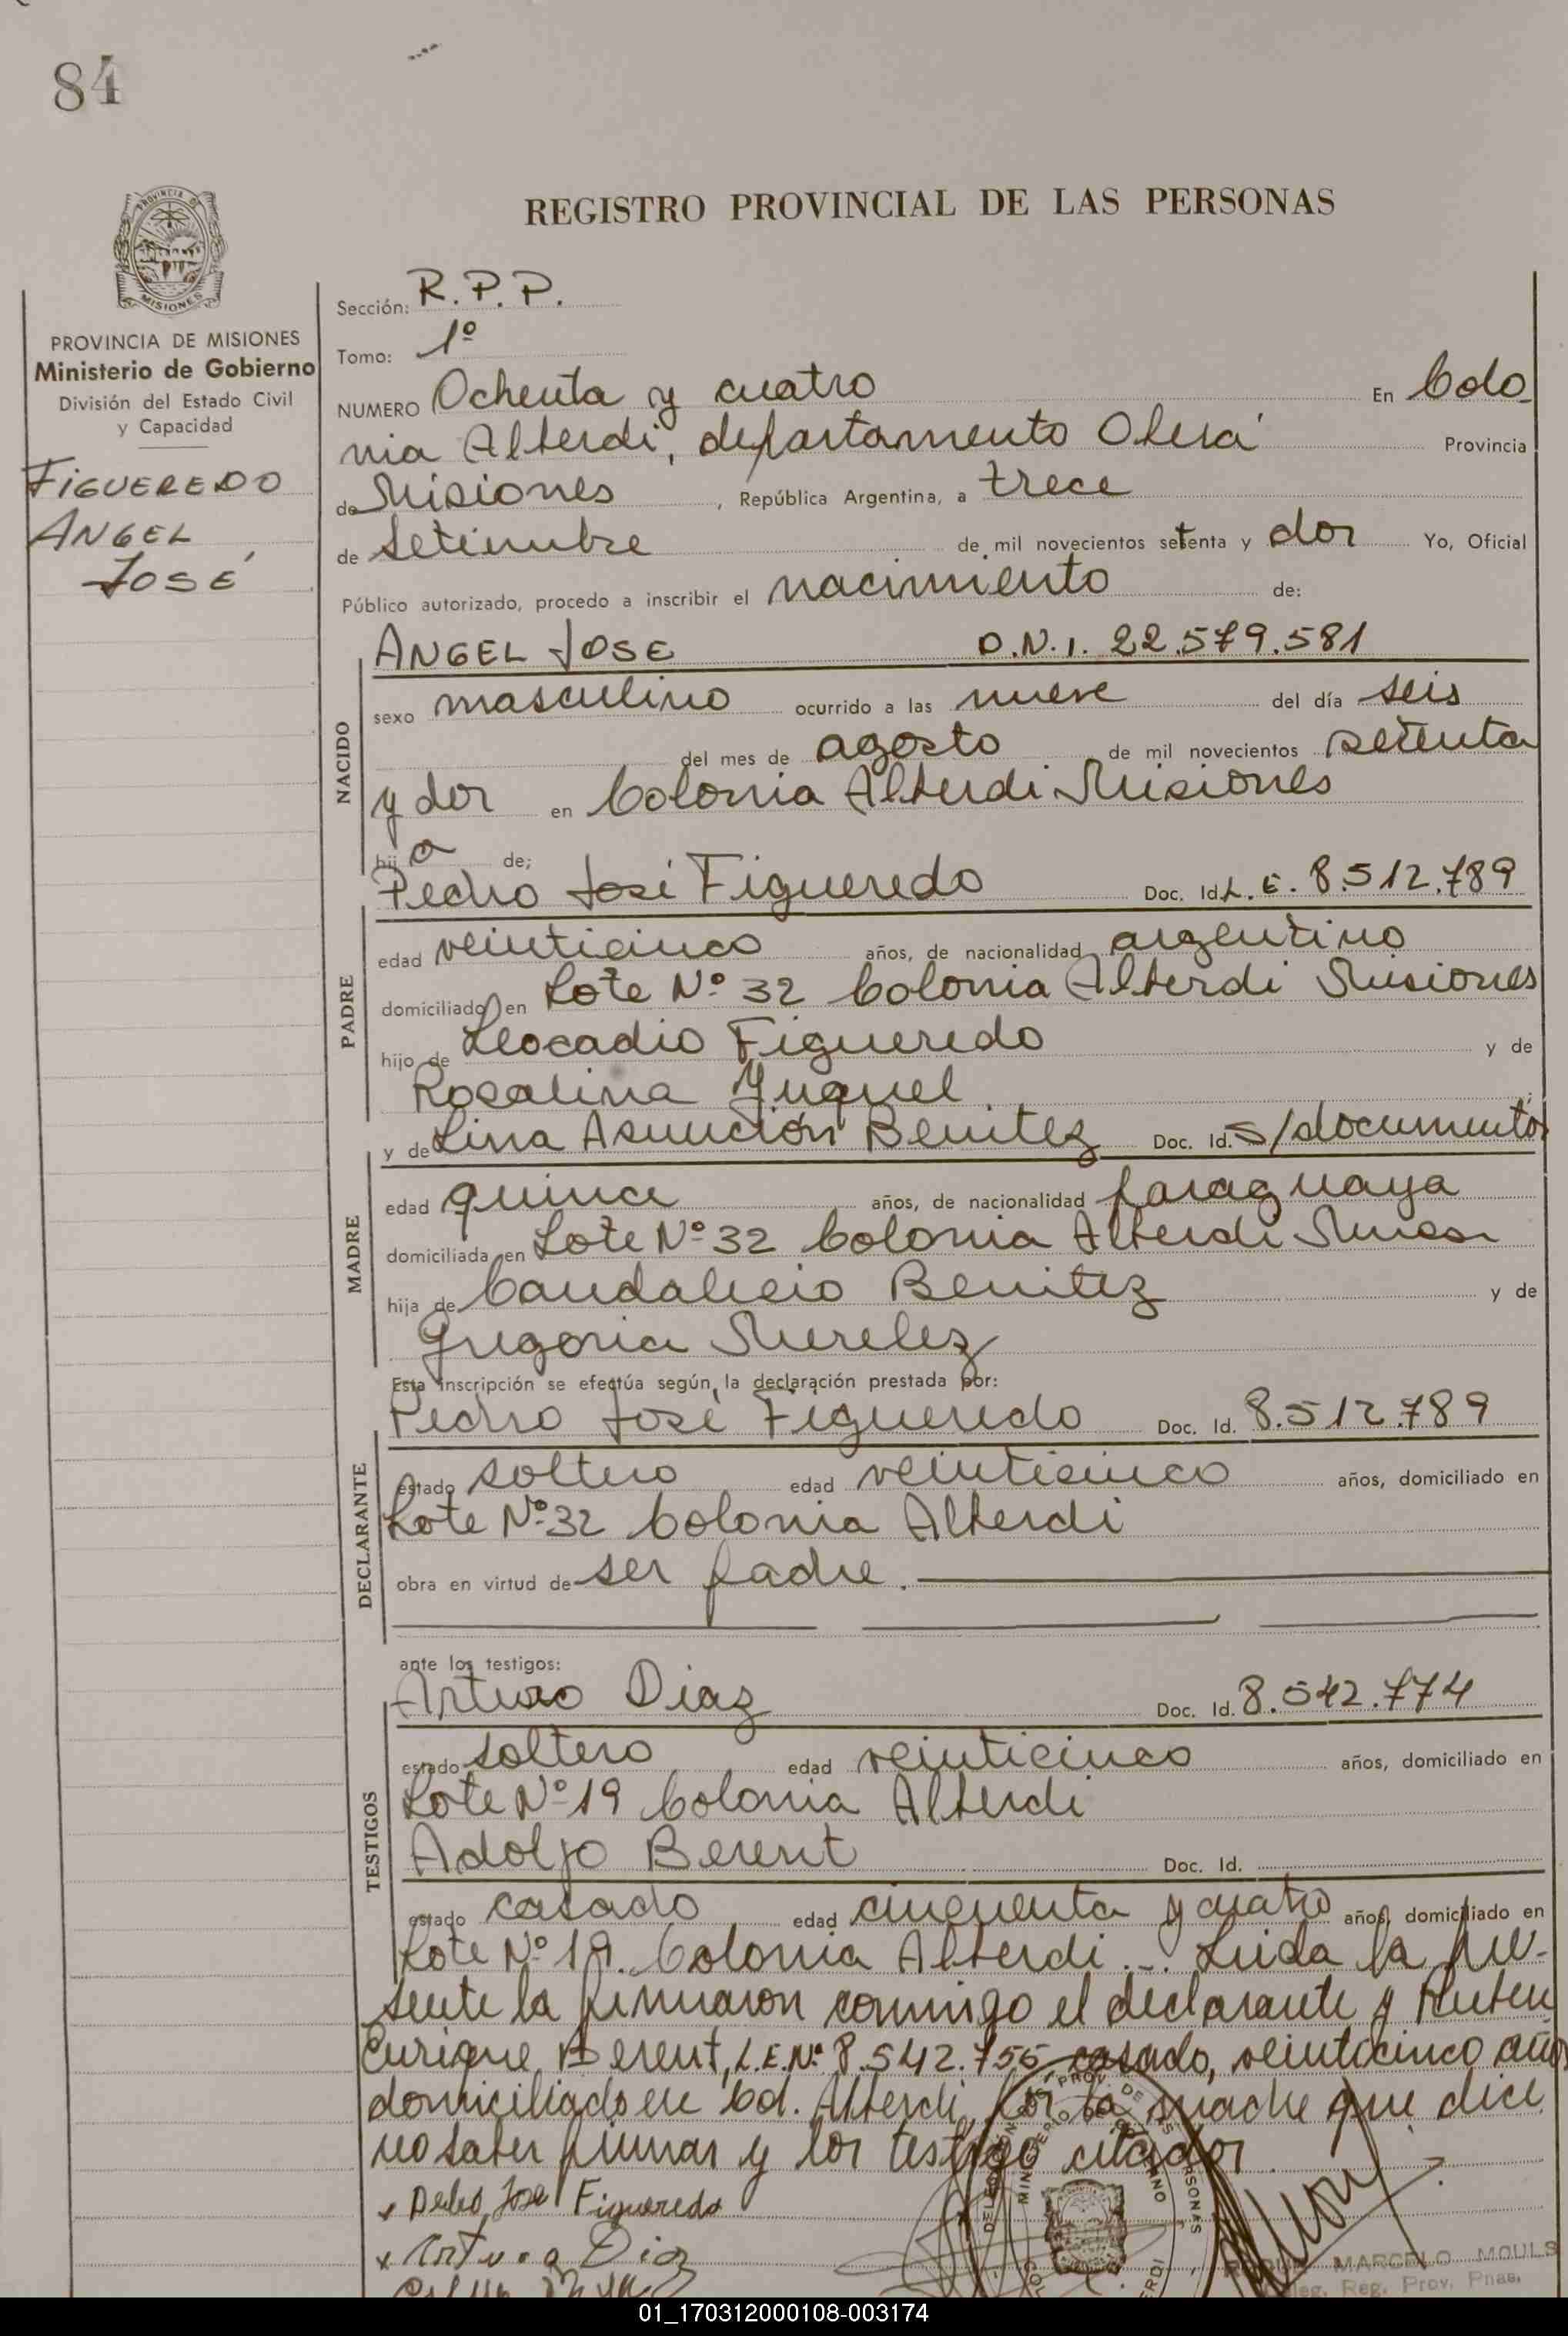 84
REGISTRO PROVINCIAL DE LAS PERSONAS
PROVINCIA DE MISIONES
Ministerio de Gobierno
División del Estado Civil
y Capacidad
FIGUEREDO
ANGEL
JOSÉ
Sección: R.P.P.
Tomo: 1º
NUMERO Ochenta y cuatro En Colo
nia Alberdi, departamento Oberá Provincia
de Misiones, República Argentina, a trece
de setiembre de mil novecientos setenta y dos Yo, Oficial
Público autorizado, procedo a inscribir el nacimiento de:
NACIDO
ANGEL JOSE D.N.I. 22.579.581
sexo masculino ocurrido a las nueve del día seis
del mes de agosto de mil novecientos setenta
y dos en Colonia Alberdi Misiones
hijo de;
PADRE
Pedro José Figueredo Doc. Id. L.E. 8.512.789
edad veinticinco años, de nacionalidad argentino
domiciliado en Lote Nº 32 Colonia Alberdi Misiones
hijo de Leocadio Figueredo y de
Rosalina Yuquel
MADRE
y de Lina Asunción Benitez Doc. Id. s/documento
edad quince años, de nacionalidad paraguaya
domiciliada en Lote Nº 32 Colonia Alberdi
hija de Candalicio Benitez y de
Gregoria Merelez
Esta inscripción se efectúa según la declaración prestada por:
DECLARANTE
Pedro José Figueredo Doc. Id. 8.512.789
estado soltero edad veinticinco años, domiciliado en
Lote Nº 32 Colonia Alberdi
obra en virtud de ser padre.
ante los testigos:
TESTIGOS
Arturo Diaz Doc. Id. 8.542.774
estado soltero edad veinticinco años, domiciliado en
Lote Nº 19 Colonia Alberdi
Adolfo Berent Doc. Id.
estado casado edad cincuenta y cuatro años, domiciliado en
Lote Nº 19. Colonia Alberdi... Leida la pre-
sente la firmaron conmigo el declarante y Ruben
Enrique Berent, L.E.Nº 8.542.755 casado, veinticinco años
domiciliado en Col. Alberdi, por la madre que dice
no saber firmar y los testigo citados
x Pedro Jose Figueredo
x Arturo Diaz
MARCELO MOULS
Deleg. Reg. Prov. Pnas.
01_170312000108-003174